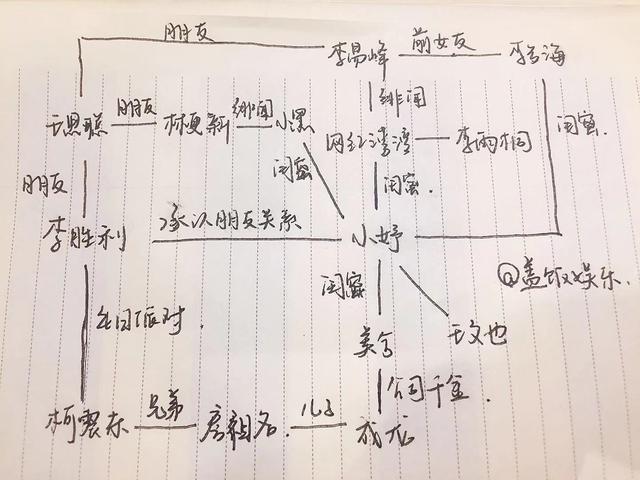 朋友
李易峰 前女友 李吉海
王思聪 朋友 林更新 绯闻 小黑 绯闻
网红湾湾 李雨桐 闺蜜.
闺蜜 闺蜜.
朋友
李胜利 承认朋友关系 小妤
@盖饭娱乐.
闺蜜
生日派对.
美合 王文也
公司千金.
柯震东 兄弟 房祖名. 儿子 成龙